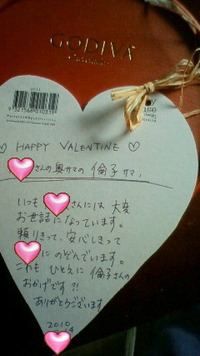 GODIVA
♡ HAPPY VALENTINE ♡
さんの奥サマの 倫子サマ
いつも さんには 大変
お世話になっています。
頼りきって、安心しきって
にのぞんでいます。
これも ひとえに 倫子さんの
おかげです?!
ありがとうございます
2010